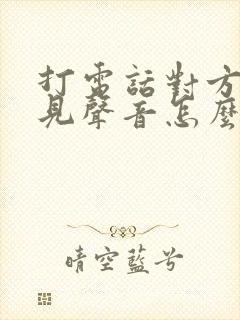 打電話對方
見聲音怎麼
晴空藍兮